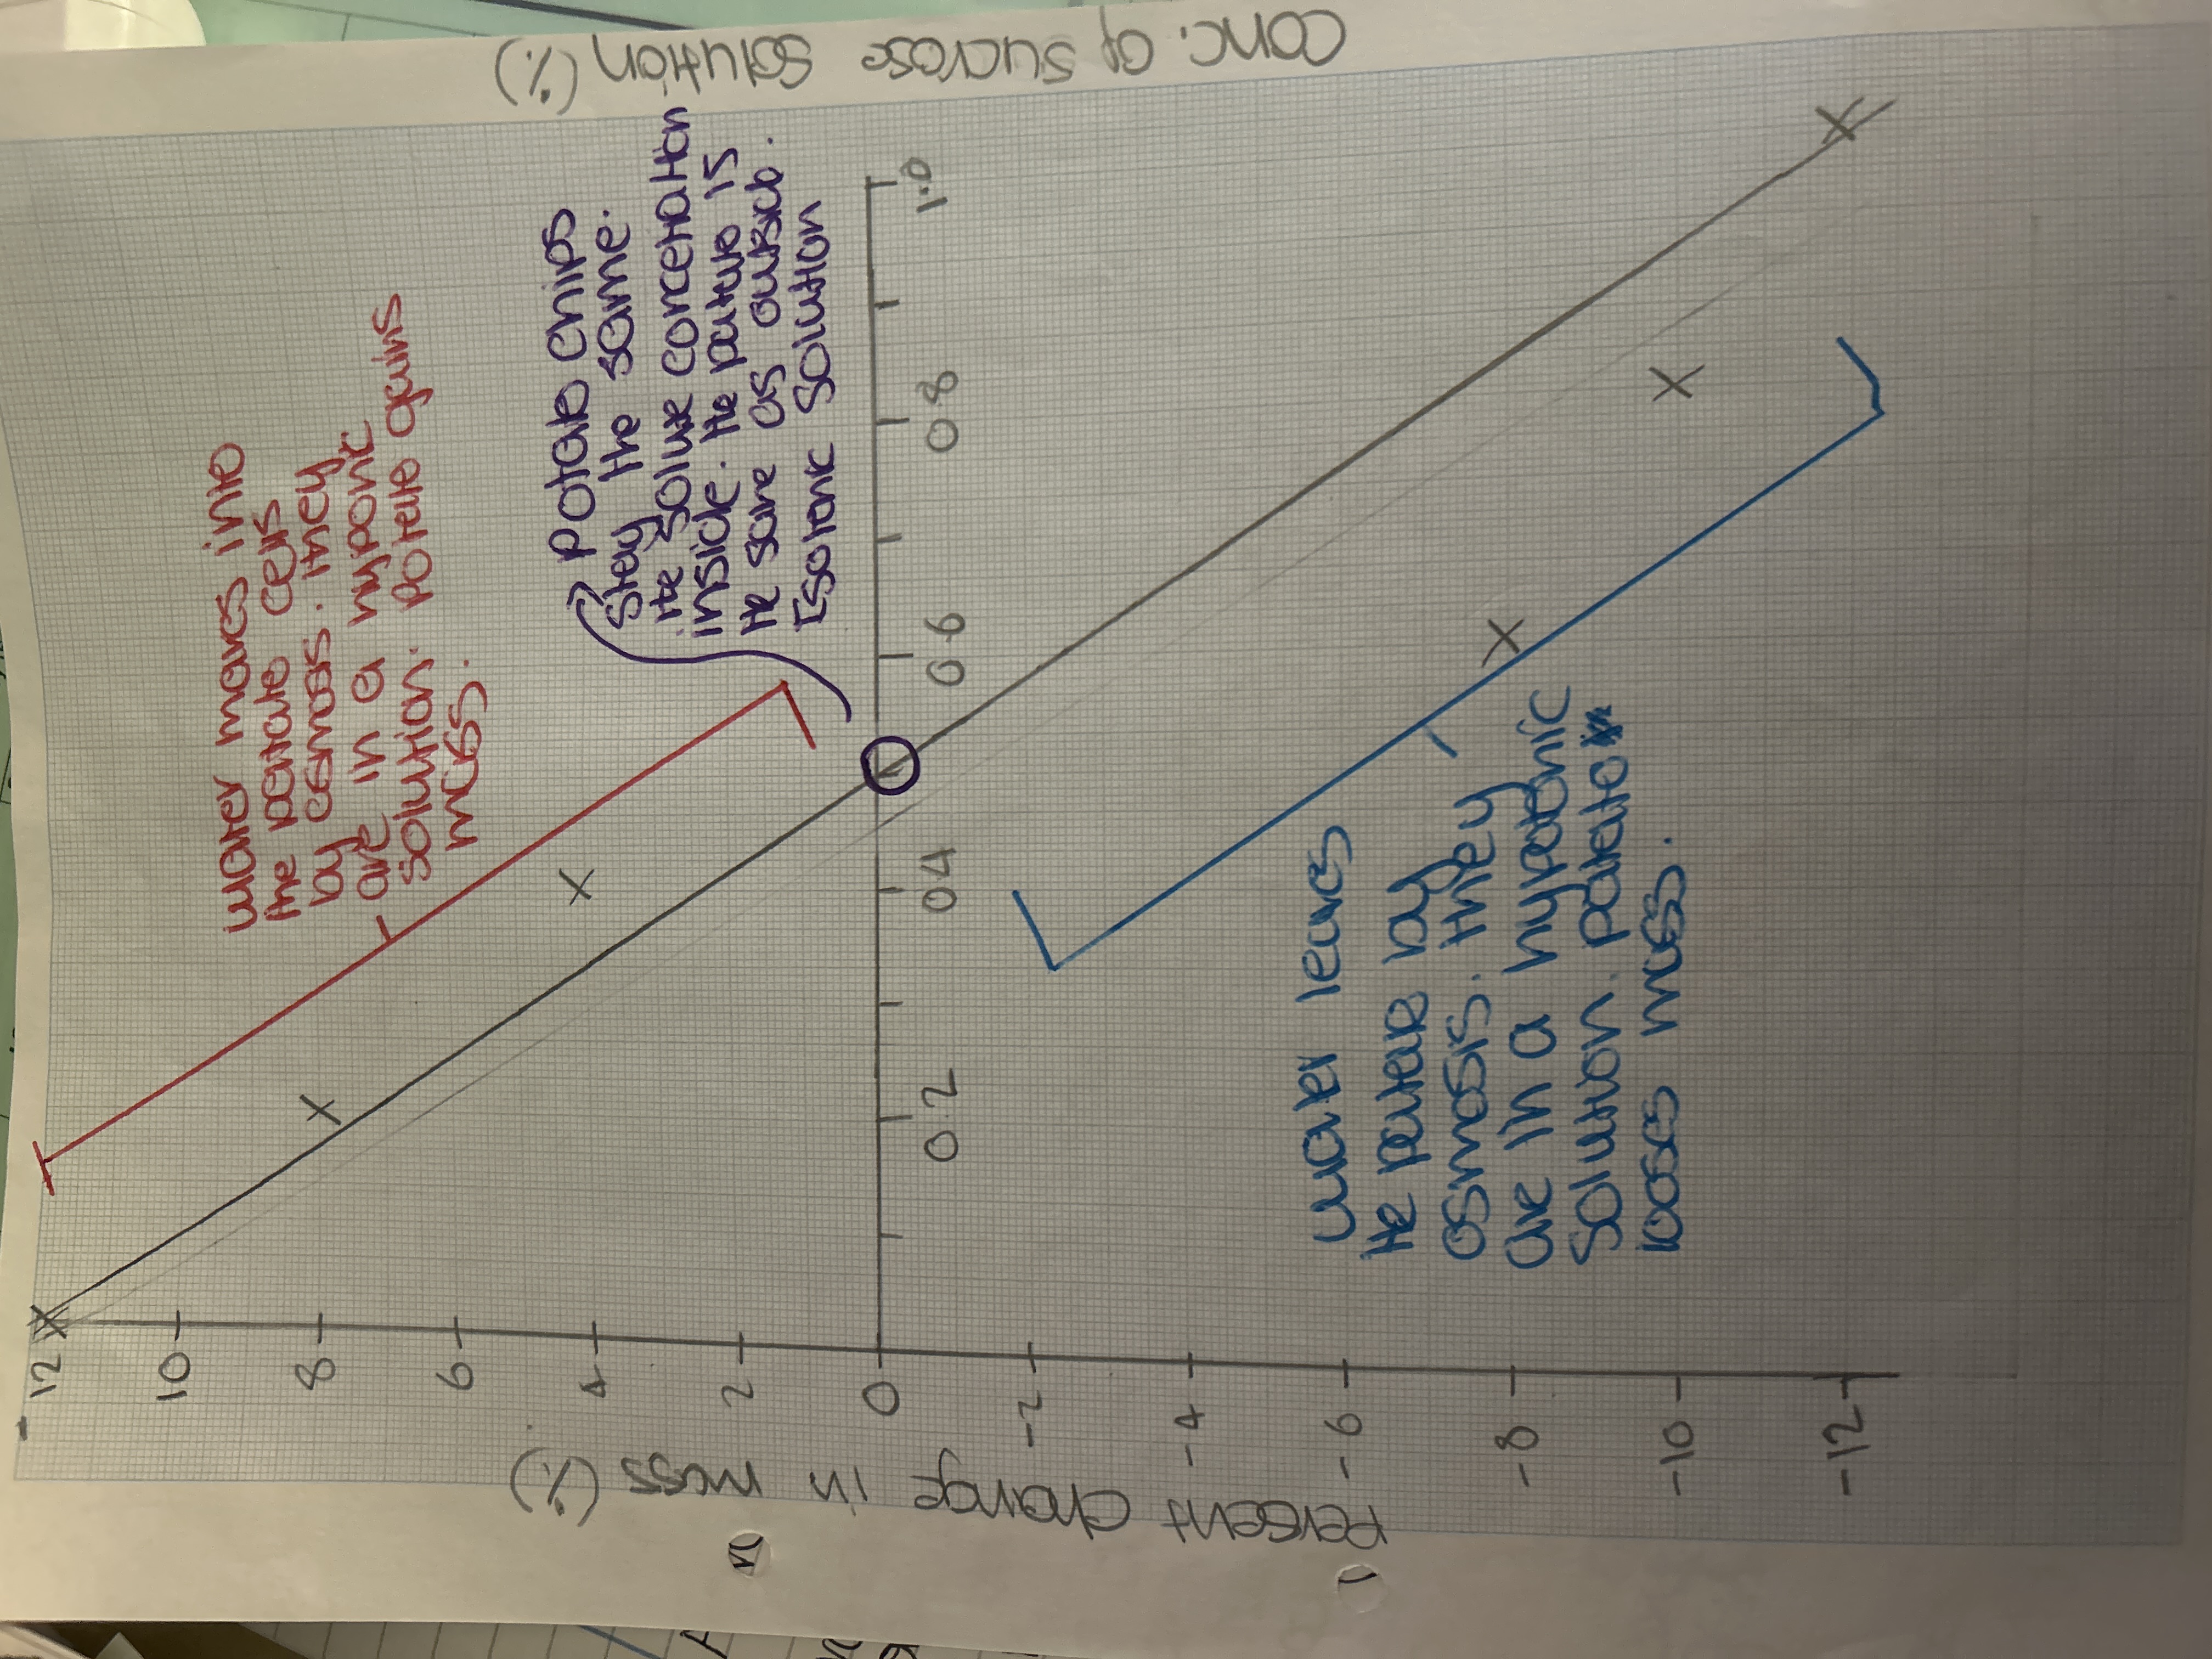 water moves into
the potato cells
by osmosis. they
are in a hyponic
solution. potato gains
mass.
potato chips
stay the same.
the solute concetration
inside. the potato is
the same as outside.
Isotonic solution
12
10
8
6
4
2
0
-2
-4
-6
-8
-10
-12
0.2
0.4
0.6
0.8
1.0
water leaves
the potato by
osmosis. they
are in a hypotonic
solution. potato
looses mass.
Percent change in mass (%)
conc. of sucrose solution (%)